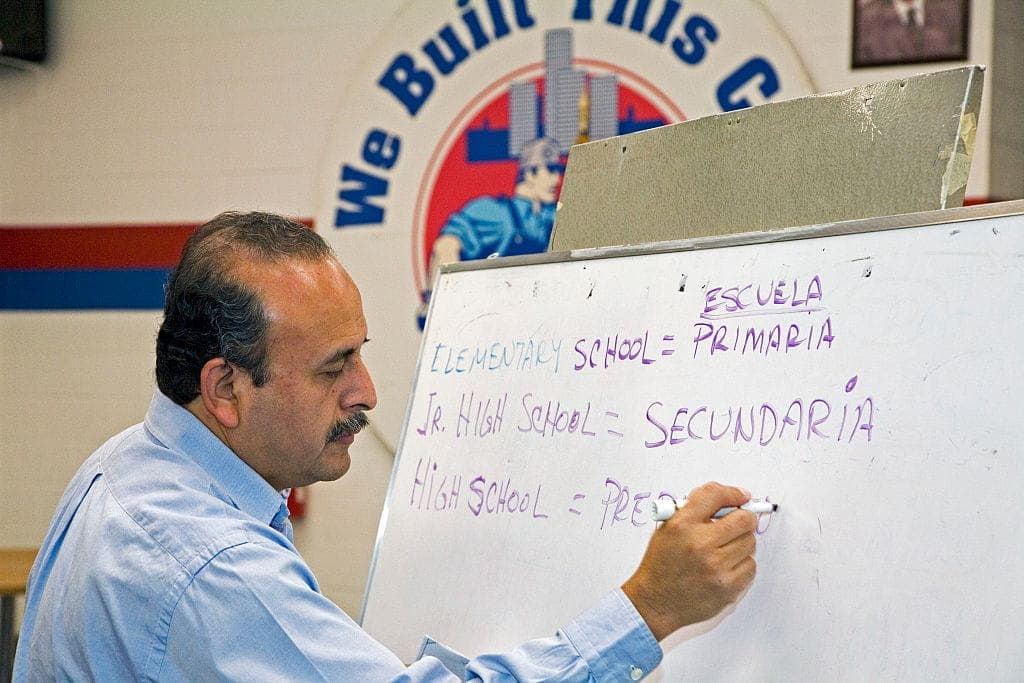 We Built This C
ESCUELA
ELEMENTARY SCHOOL = PRIMARIA
JR. HIGH SCHOOL = SECUNDARIA
HIGH SCHOOL =